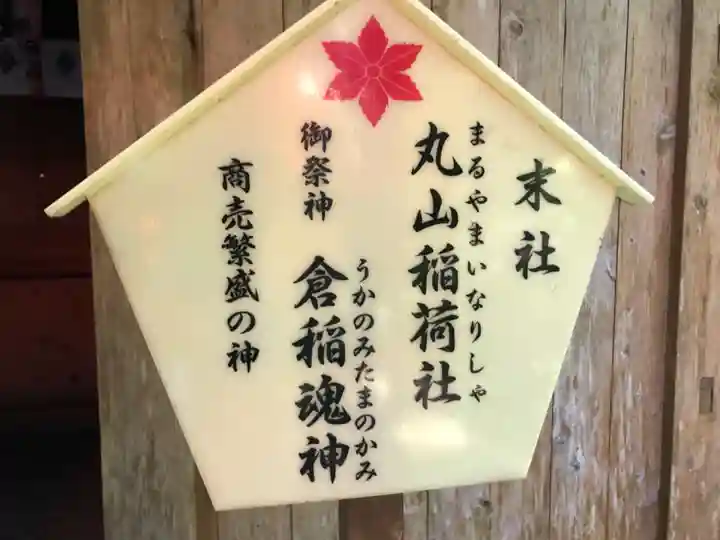 末社
まるやまいなりしゃ
丸山稲荷社
御祭神
うかのみたまのかみ
倉稲魂神
商売繁盛の神